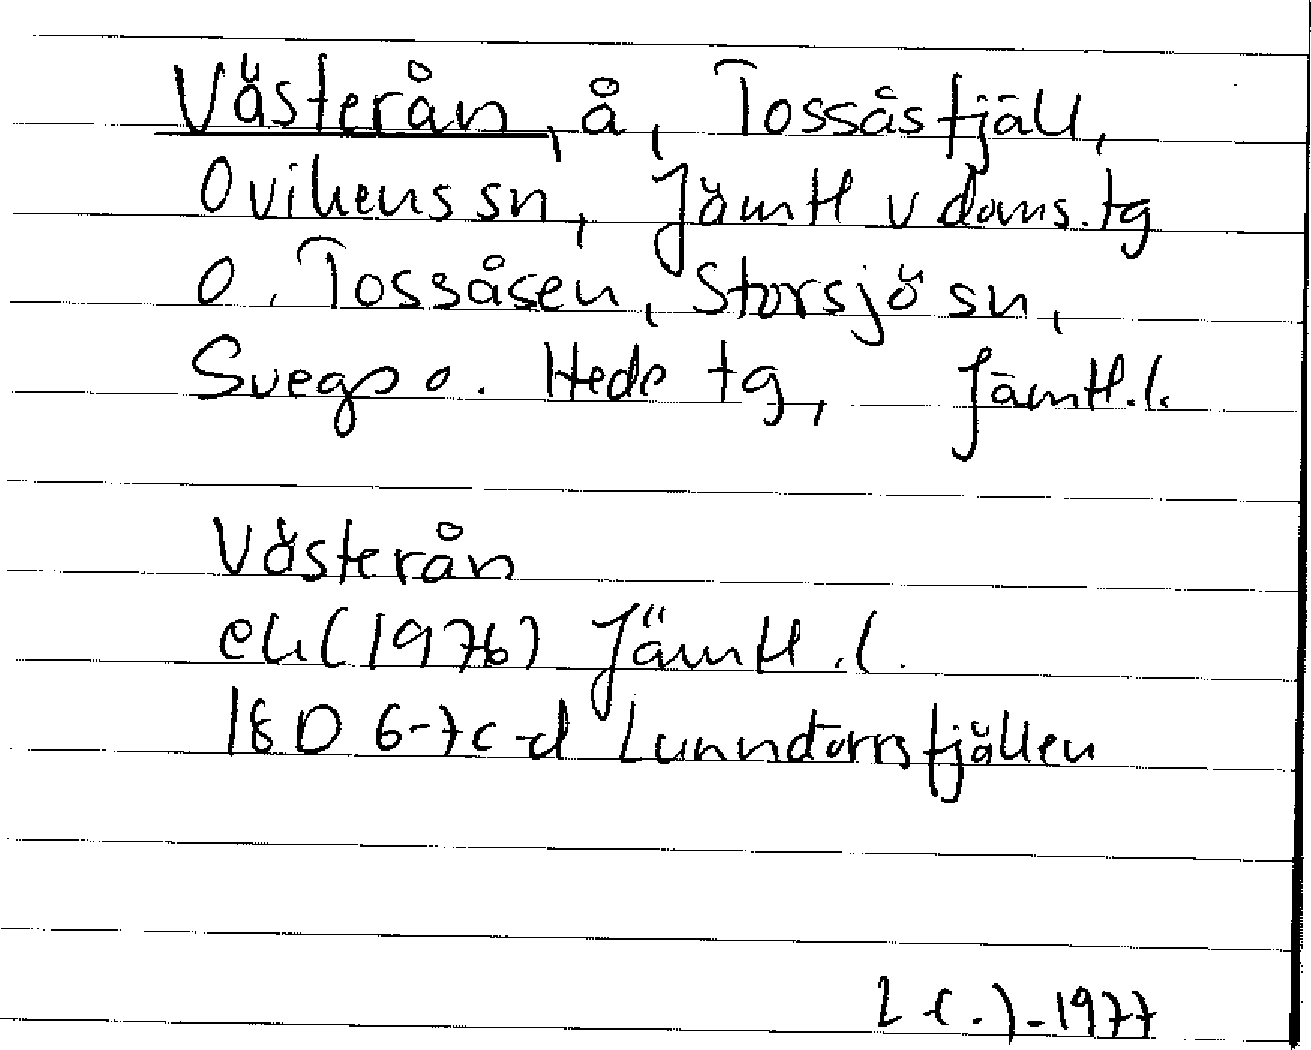 Västerån, å, Tossåsfjäll,
Ovikens sn, Jämtl v doms.tg
o. Tossåsen, Storsjö sn,
Svegs o. Hede tg, Jämtl.l.
Västerån
ek (1976) Jämtl.l.
18D 6-7c-d Lunndörrsfjällen
1977